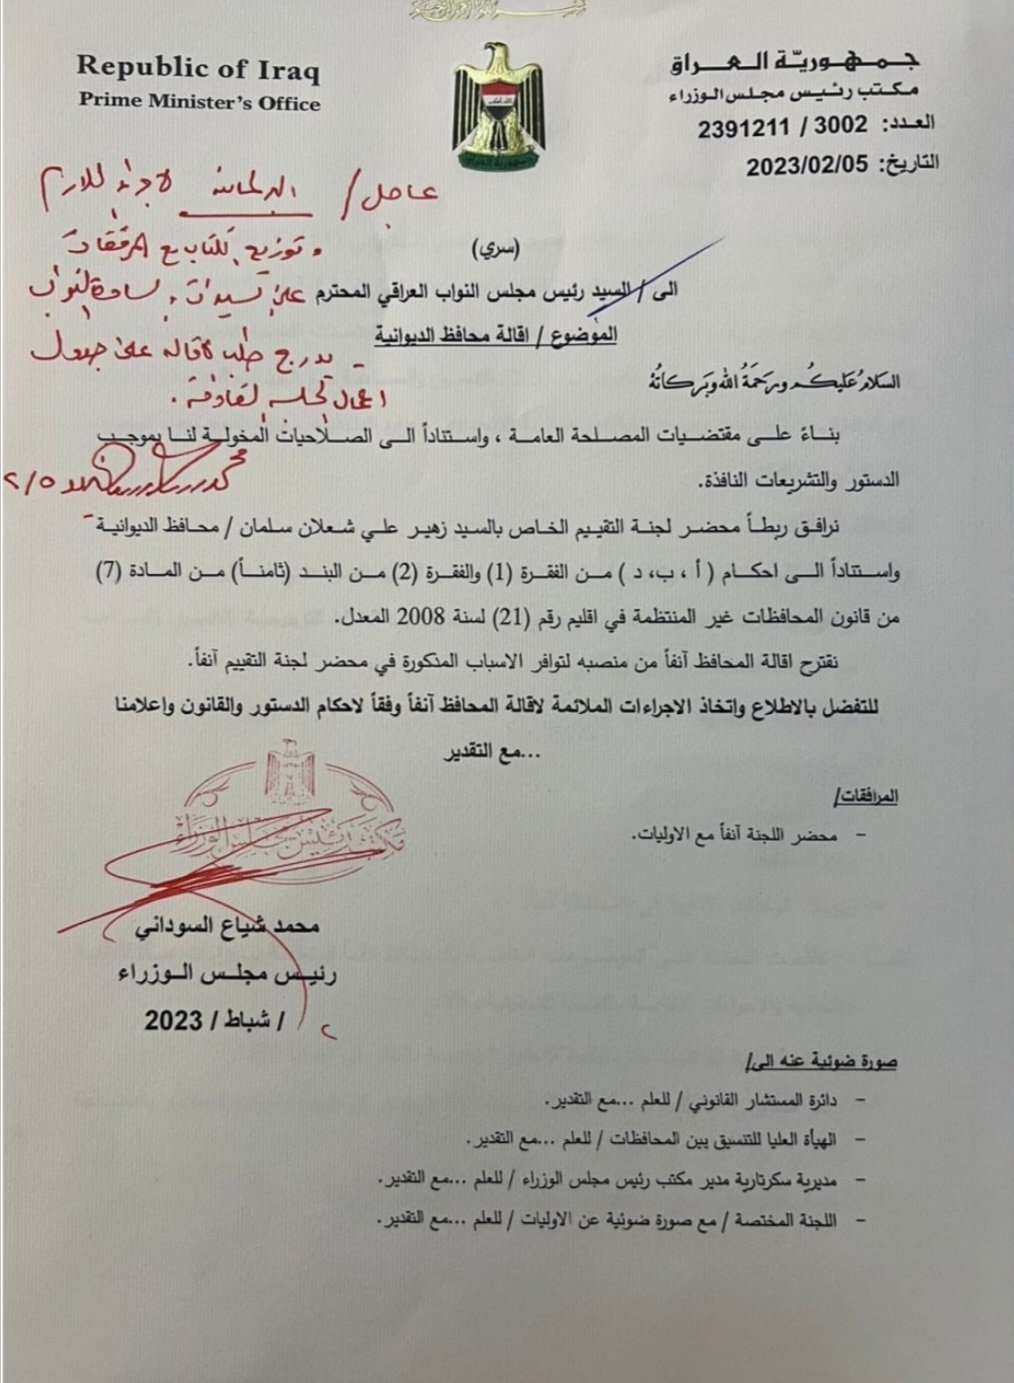 Republic of Iraq
Prime Minister's Office
جمهوريّة العراق
مكتب رئيس مجلس الوزراء
العدد: 3002 / 2391211
التاريخ: 2023/02/05
عاجل / البرلمانية لاجراء اللازم
وتوزيع الكتاب مع المرفقات
على السيدات والسادة النواب
- يدرج طلب الاقالة على جدول
اعمال الجلسة القادمة.
٢/٥
(سري)
الى / السيد رئيس مجلس النواب العراقي المحترم
الموضوع / اقالة محافظ الديوانية
السَّلامُ عَلَيكُم ورَحمَةُ اللّٰه وبَركاتُهُ
بناءً على مقتضيات المصلحة العامة ، واستناداً الى الصلاحيات المخولة لنا بموجب
الدستور والتشريعات النافذة.
نرافق ربطاً محضر لجنة التقييم الخاص بالسيد زهير علي شعلان سلمان / محافظ الديوانية
واستناداً الى احكام ( أ ، ب، د ) من الفقرة (1) والفقرة (2) من البند (ثامناً) من المادة (7)
من قانون المحافظات غير المنتظمة في اقليم رقم (21) لسنة 2008 المعدل.
نقترح اقالة المحافظ آنفاً من منصبه لتوافر الاسباب المذكورة في محضر لجنة التقييم آنفاً.
للتفضل بالاطلاع واتخاذ الاجراءات الملائمة لاقالة المحافظ آنفاً وفقاً لاحكام الدستور والقانون واعلامنا
...مع التقدير
المرافقات/
- محضر اللجنة آنفاً مع الاوليات.
مكتب رئيس مجلس الوزراء
محمد شياع السوداني
رئيس مجلس الوزراء
٢ / شباط / 2023
صورة ضوئية عنه الى/
- دائرة المستشار القانوني / للعلم ...مع التقدير.
- الهيأة العليا للتنسيق بين المحافظات / للعلم ...مع التقدير.
- مديرية سكرتارية مدير مكتب رئيس مجلس الوزراء / للعلم ...مع التقدير.
- اللجنة المختصة / مع صورة ضوئية عن الاوليات / للعلم ...مع التقدير.